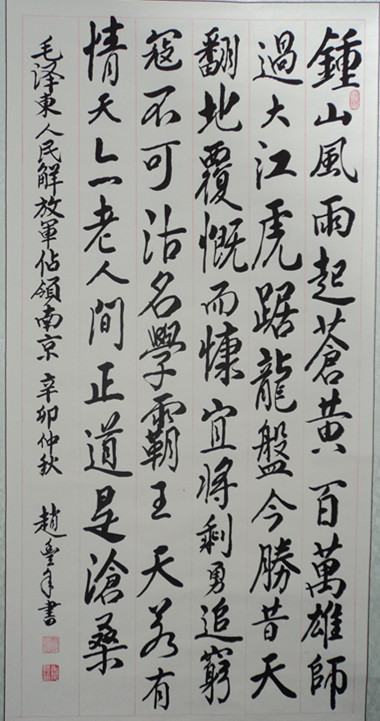 鍾山風雨起蒼黃百萬雄師
過大江虎踞龍盤今勝昔天
翻地覆慨而慷宜將剩勇追窮
寇不可沽名學霸王天若有
情天亦老人間正道是滄桑
毛泽東人民解放軍佔領南京 辛卯仲秋 趙豊年書